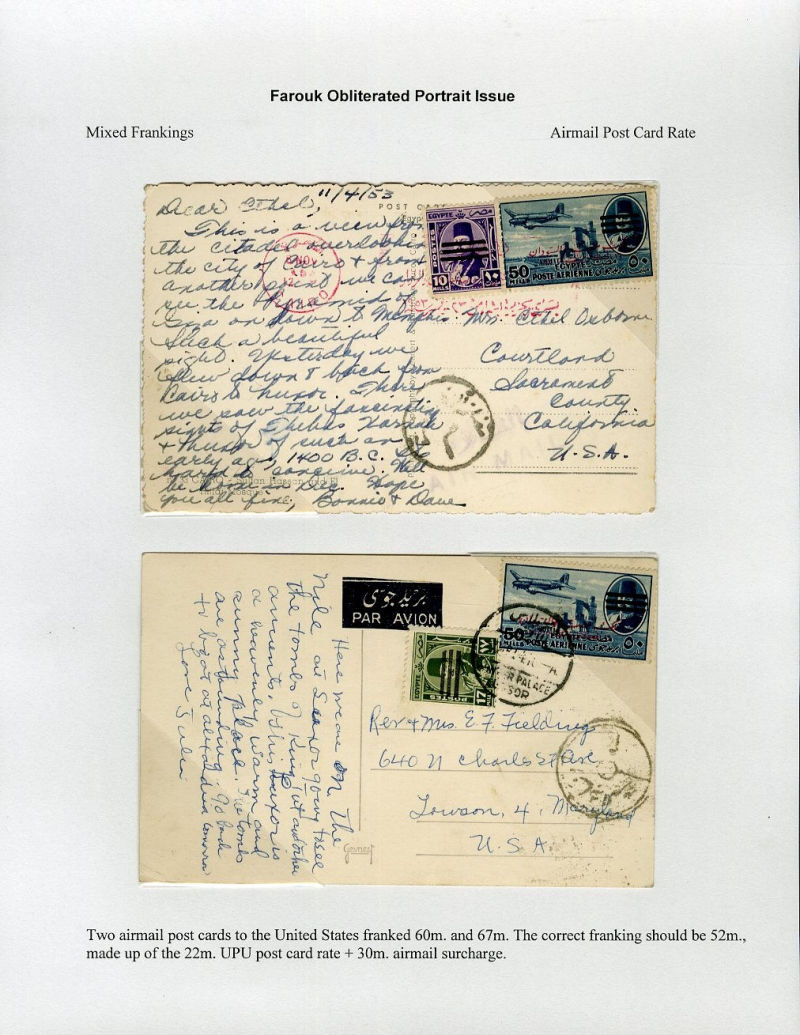 Farouk Obliterated Portrait Issue
Mixed Frankings
Airmail Post Card Rate
11/4/53
POST CARD
Dear Ethel,
This is a view from
the citadel overlooking
the city of Cairo & from
another point we can
see the Pyramid of
Giza on down to Memphis.
Such a beautiful
sight. Yesterday we
flew down & back from
Cairo to Luxor. There
we saw the
sights of Thebes Karnak
& Luxor of such an
early age, 1400 B.C.
hard to conceive. Will
be home in Dec. Hope
you all fine, Bonnie & Dave
CAIRO - Sultan Hassan and El
EGYPTE
مصر
POSTES
10
MILLS
١٠
50
MILLS
EGYPTE
POSTE AERIENNE
٥٠
NOV
CAIRO
Mrs. Ethel Osborne
Courtland
Sacramento
County
California
U.S.A.
بريد جوى
PAR AVION
Here we are on the
Nile at Luxor going to see
the tombs of King Tut and other
ancients. This Luxor is
a heavenly warm and
sunny place. The tombs
are astounding. Go back
to boat at Alexandria tomorrow
Love Julia
EGYPTE
POSTES
17
MILLS
50
MILLS
POSTE AERIENNE
٥٠
PALACE
LUXOR
Rev & Mrs. E. F. Fielding
640 N Charles St Ave,
Towson, 4, Maryland
U.S.A.
Govnest
Two airmail post cards to the United States franked 60m. and 67m. The correct franking should be 52m.,
made up of the 22m. UPU post card rate + 30m. airmail surcharge.